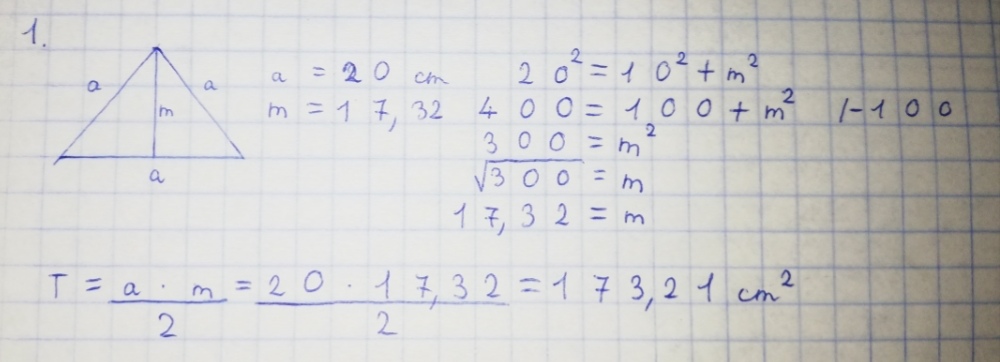 1.
a a
m
a
a = 20 cm 20² = 10² + m²
m = 17,32 400 = 100 + m² /-100
300 = m²
√300 = m
17,32 = m
T = a · m / 2 = 20 · 17,32 / 2 = 173,21 cm²